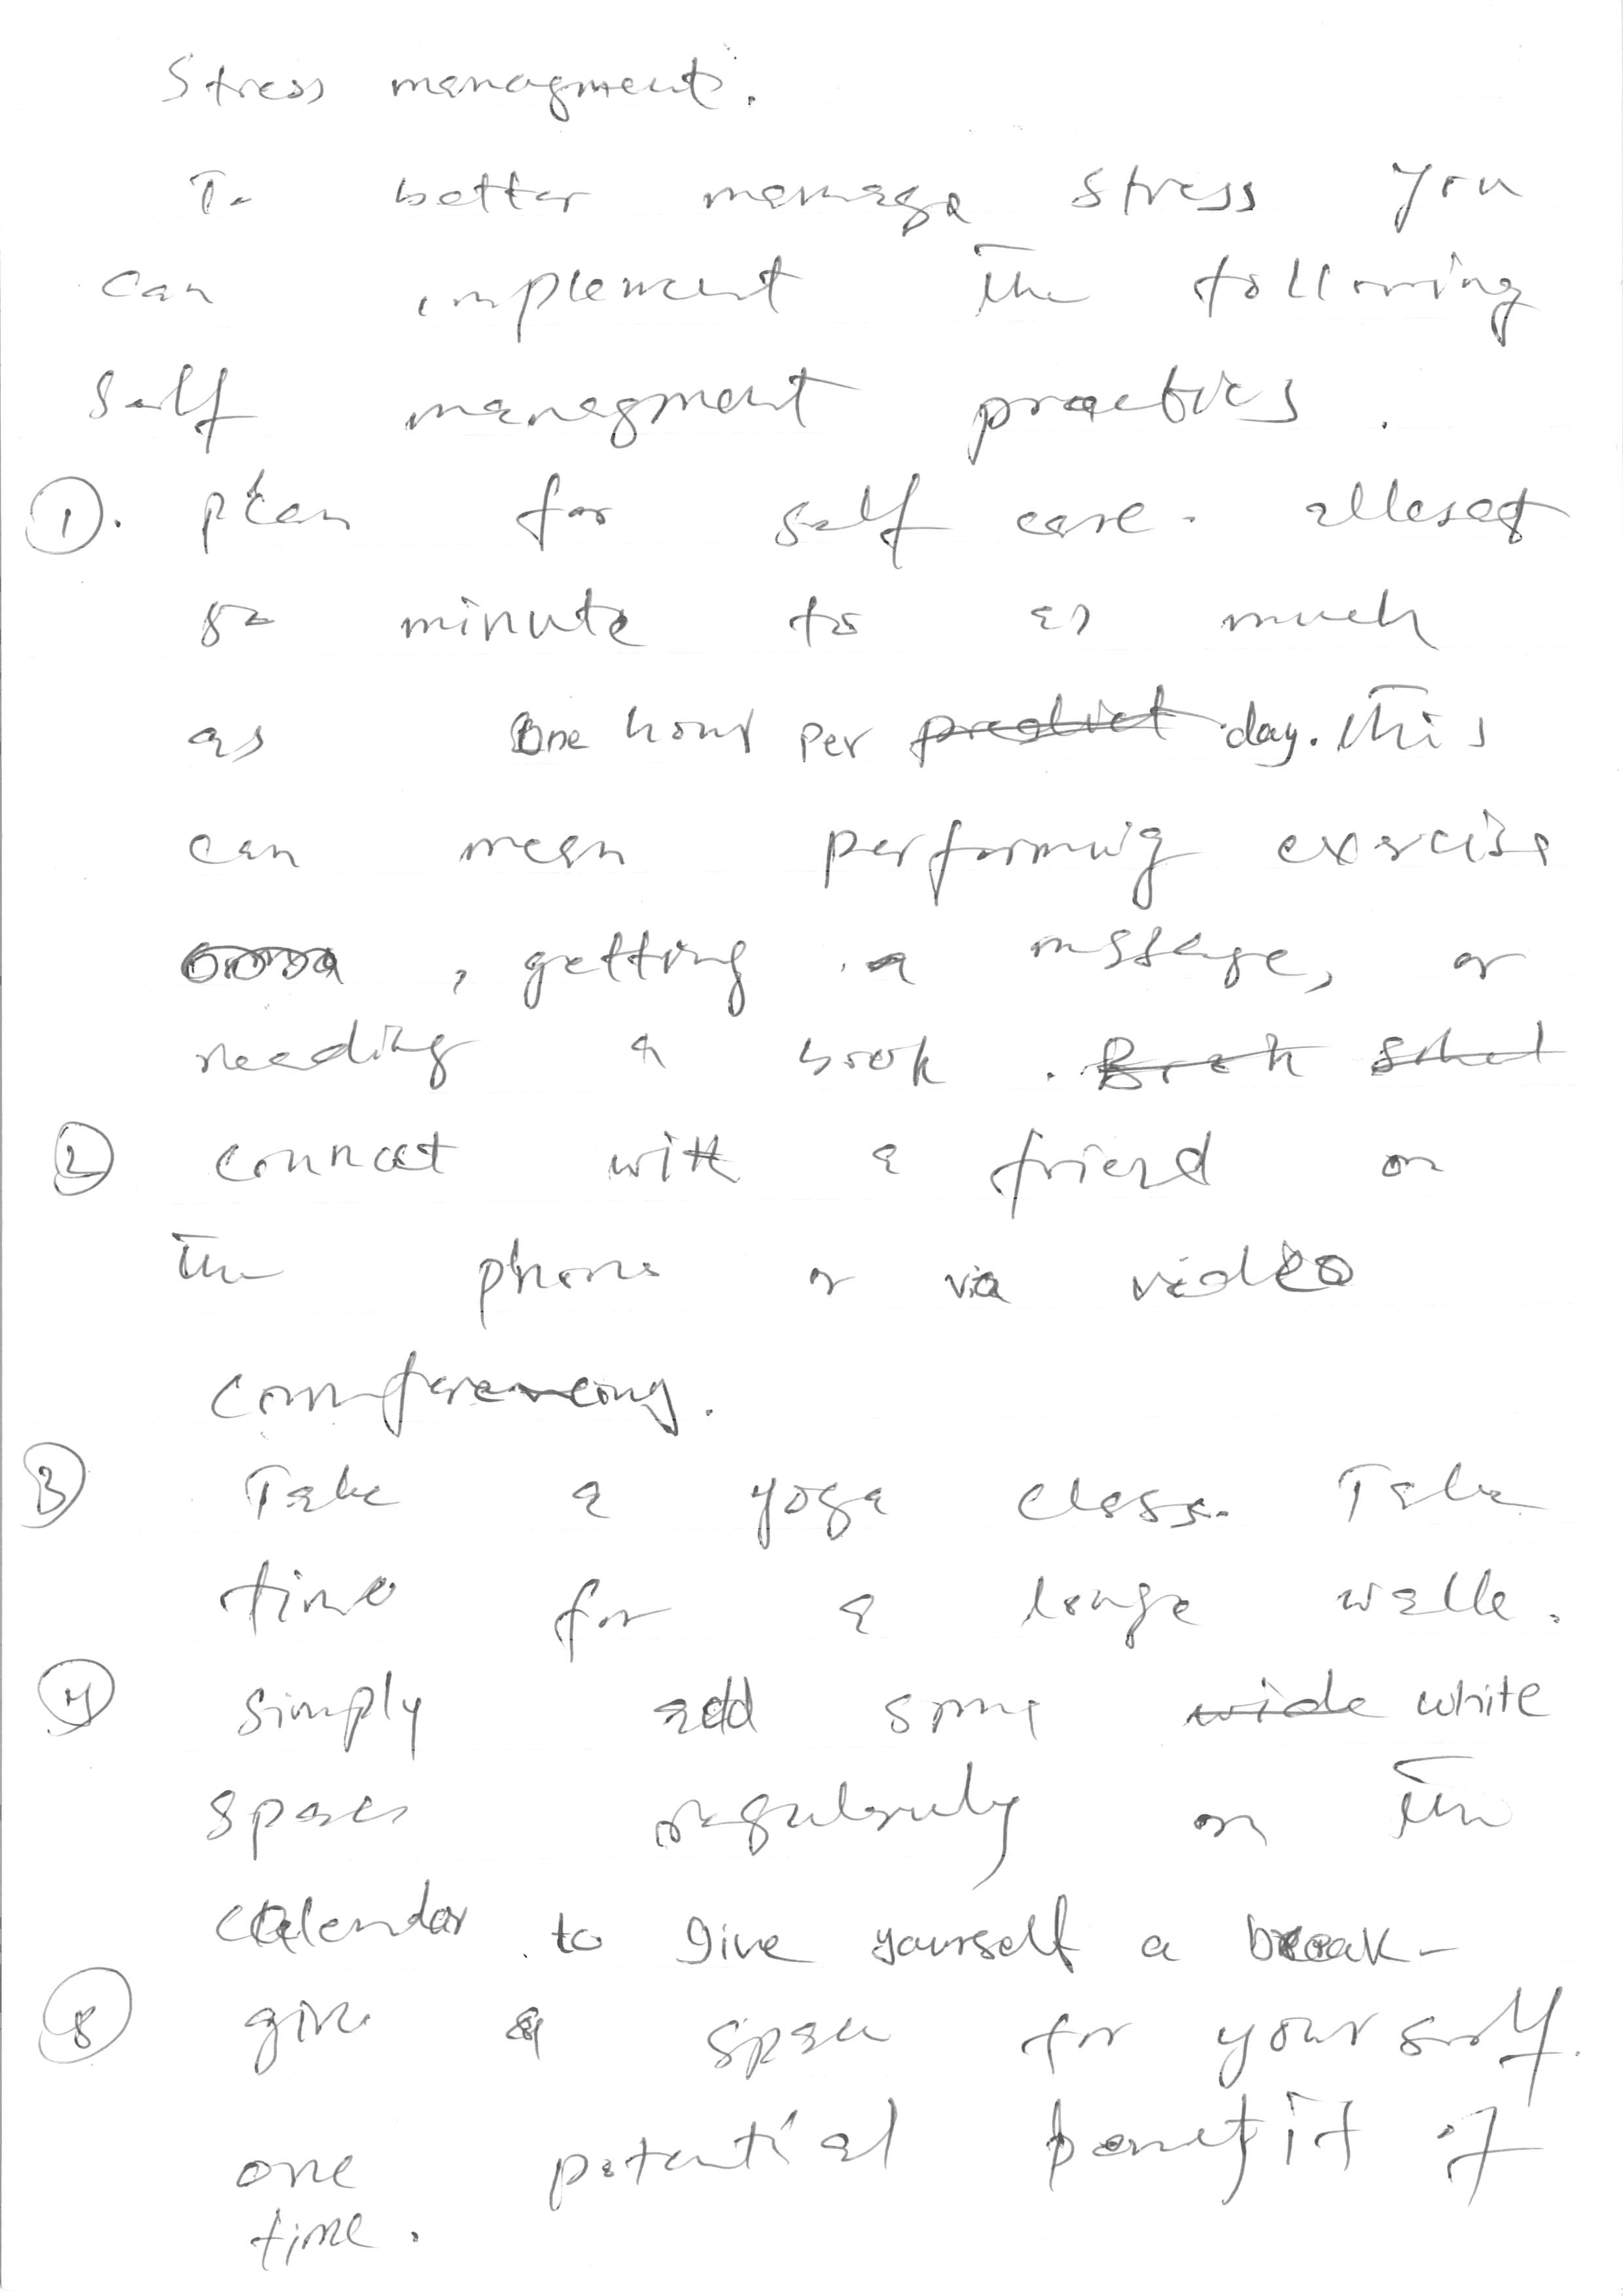 Stress managment.
To better manage stress you
can implement the following
Self managment practics.
①. plan for self care. alleast
50 minute to as much
as One hour per predict day. This
can mean performing exercise
, getting a massage, or
reading a book.
② connect with a friend on
the phone or via video
comferencing.
③ Take a yoga class. Take
time for a longe walk.
④ simply add some wide white
spaces regularly on the
calendar to give yourself a break-
⑤ give a space for yourself.
one potential benefit of
time.